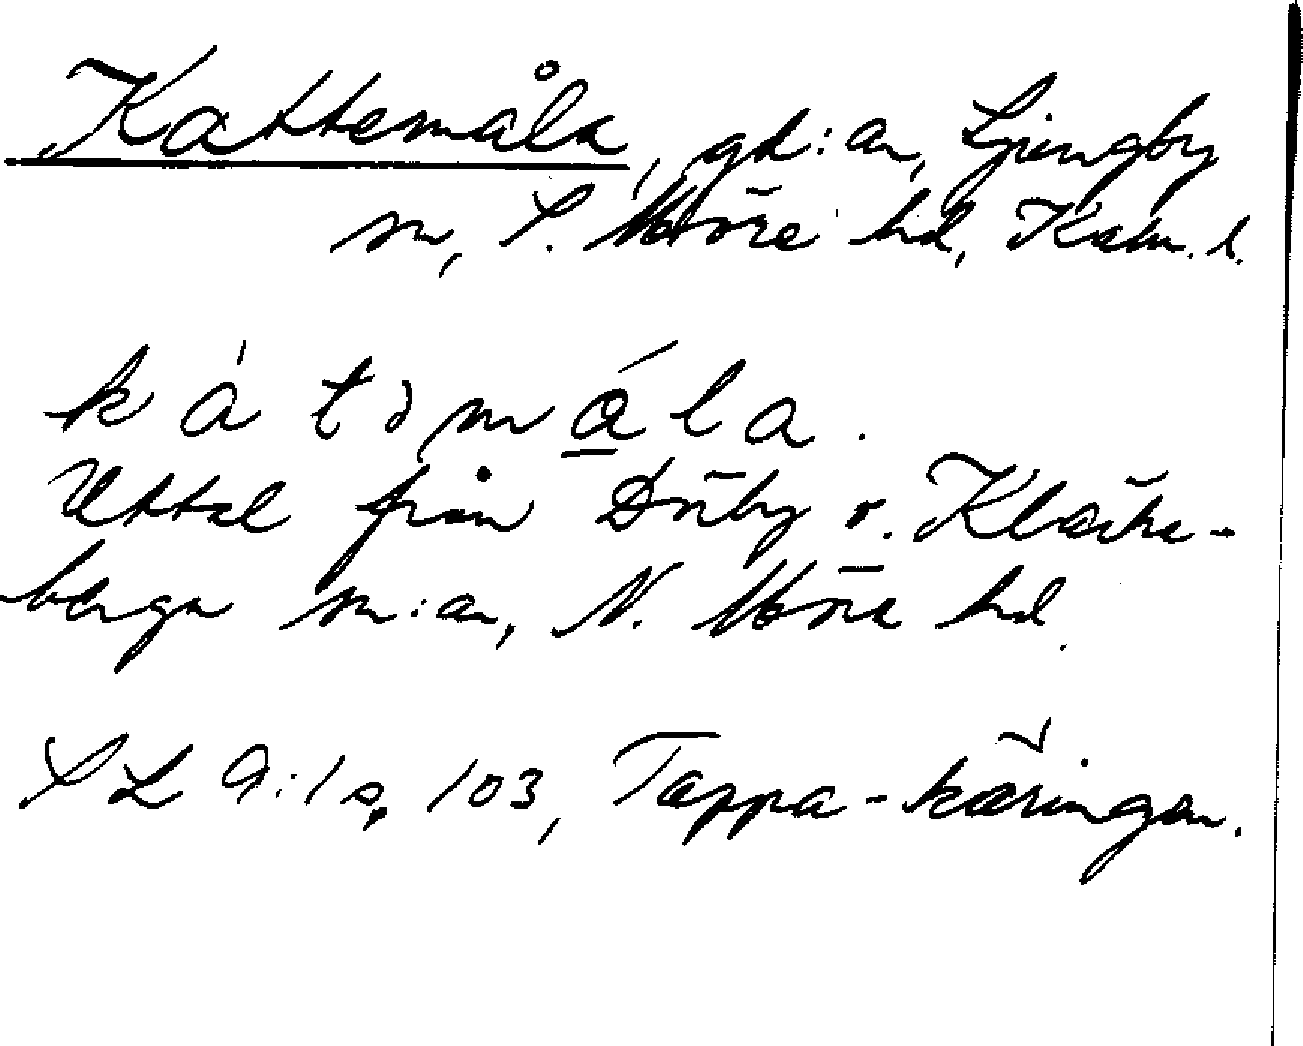 Kattemåla, gd:an, Ljungby
sn, S. Möre hd, Kalm. l.
kàtəmá̱la.
Uttal från Dörby o. Kläcke-
berga sn:ar, N. Möre hd.
SL 9:1 s. 103, Tappa-käringen.